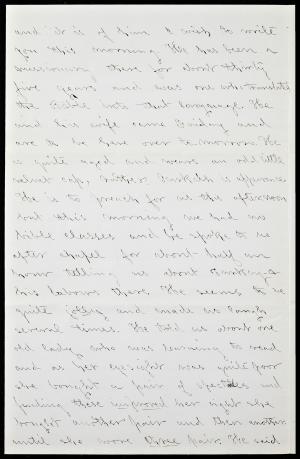 and it is of him I wish to write
you this morning. He has been a
missionary there for about thirty
five years and was one who translated
the Bible into that language. He
and his wife came Friday and
are to be here over to-morrow. He
is quite aged and wears an odd little
velvet cap, rather Turkish in appearance
He is to preach for us this afternoon
but this morning we had no
bible classes and he spoke to us
after chapel for about half an
hour telling us about Turkey &
his labours there. He seems to be
quite jolly and made us laugh
several times. He told us about one
old lady who was learning to read
and as her eye-sight was quite poor
she bought a pair of spectacles and
finding these improved her sight she
bought another pair and then another
until she wore three pair. He said